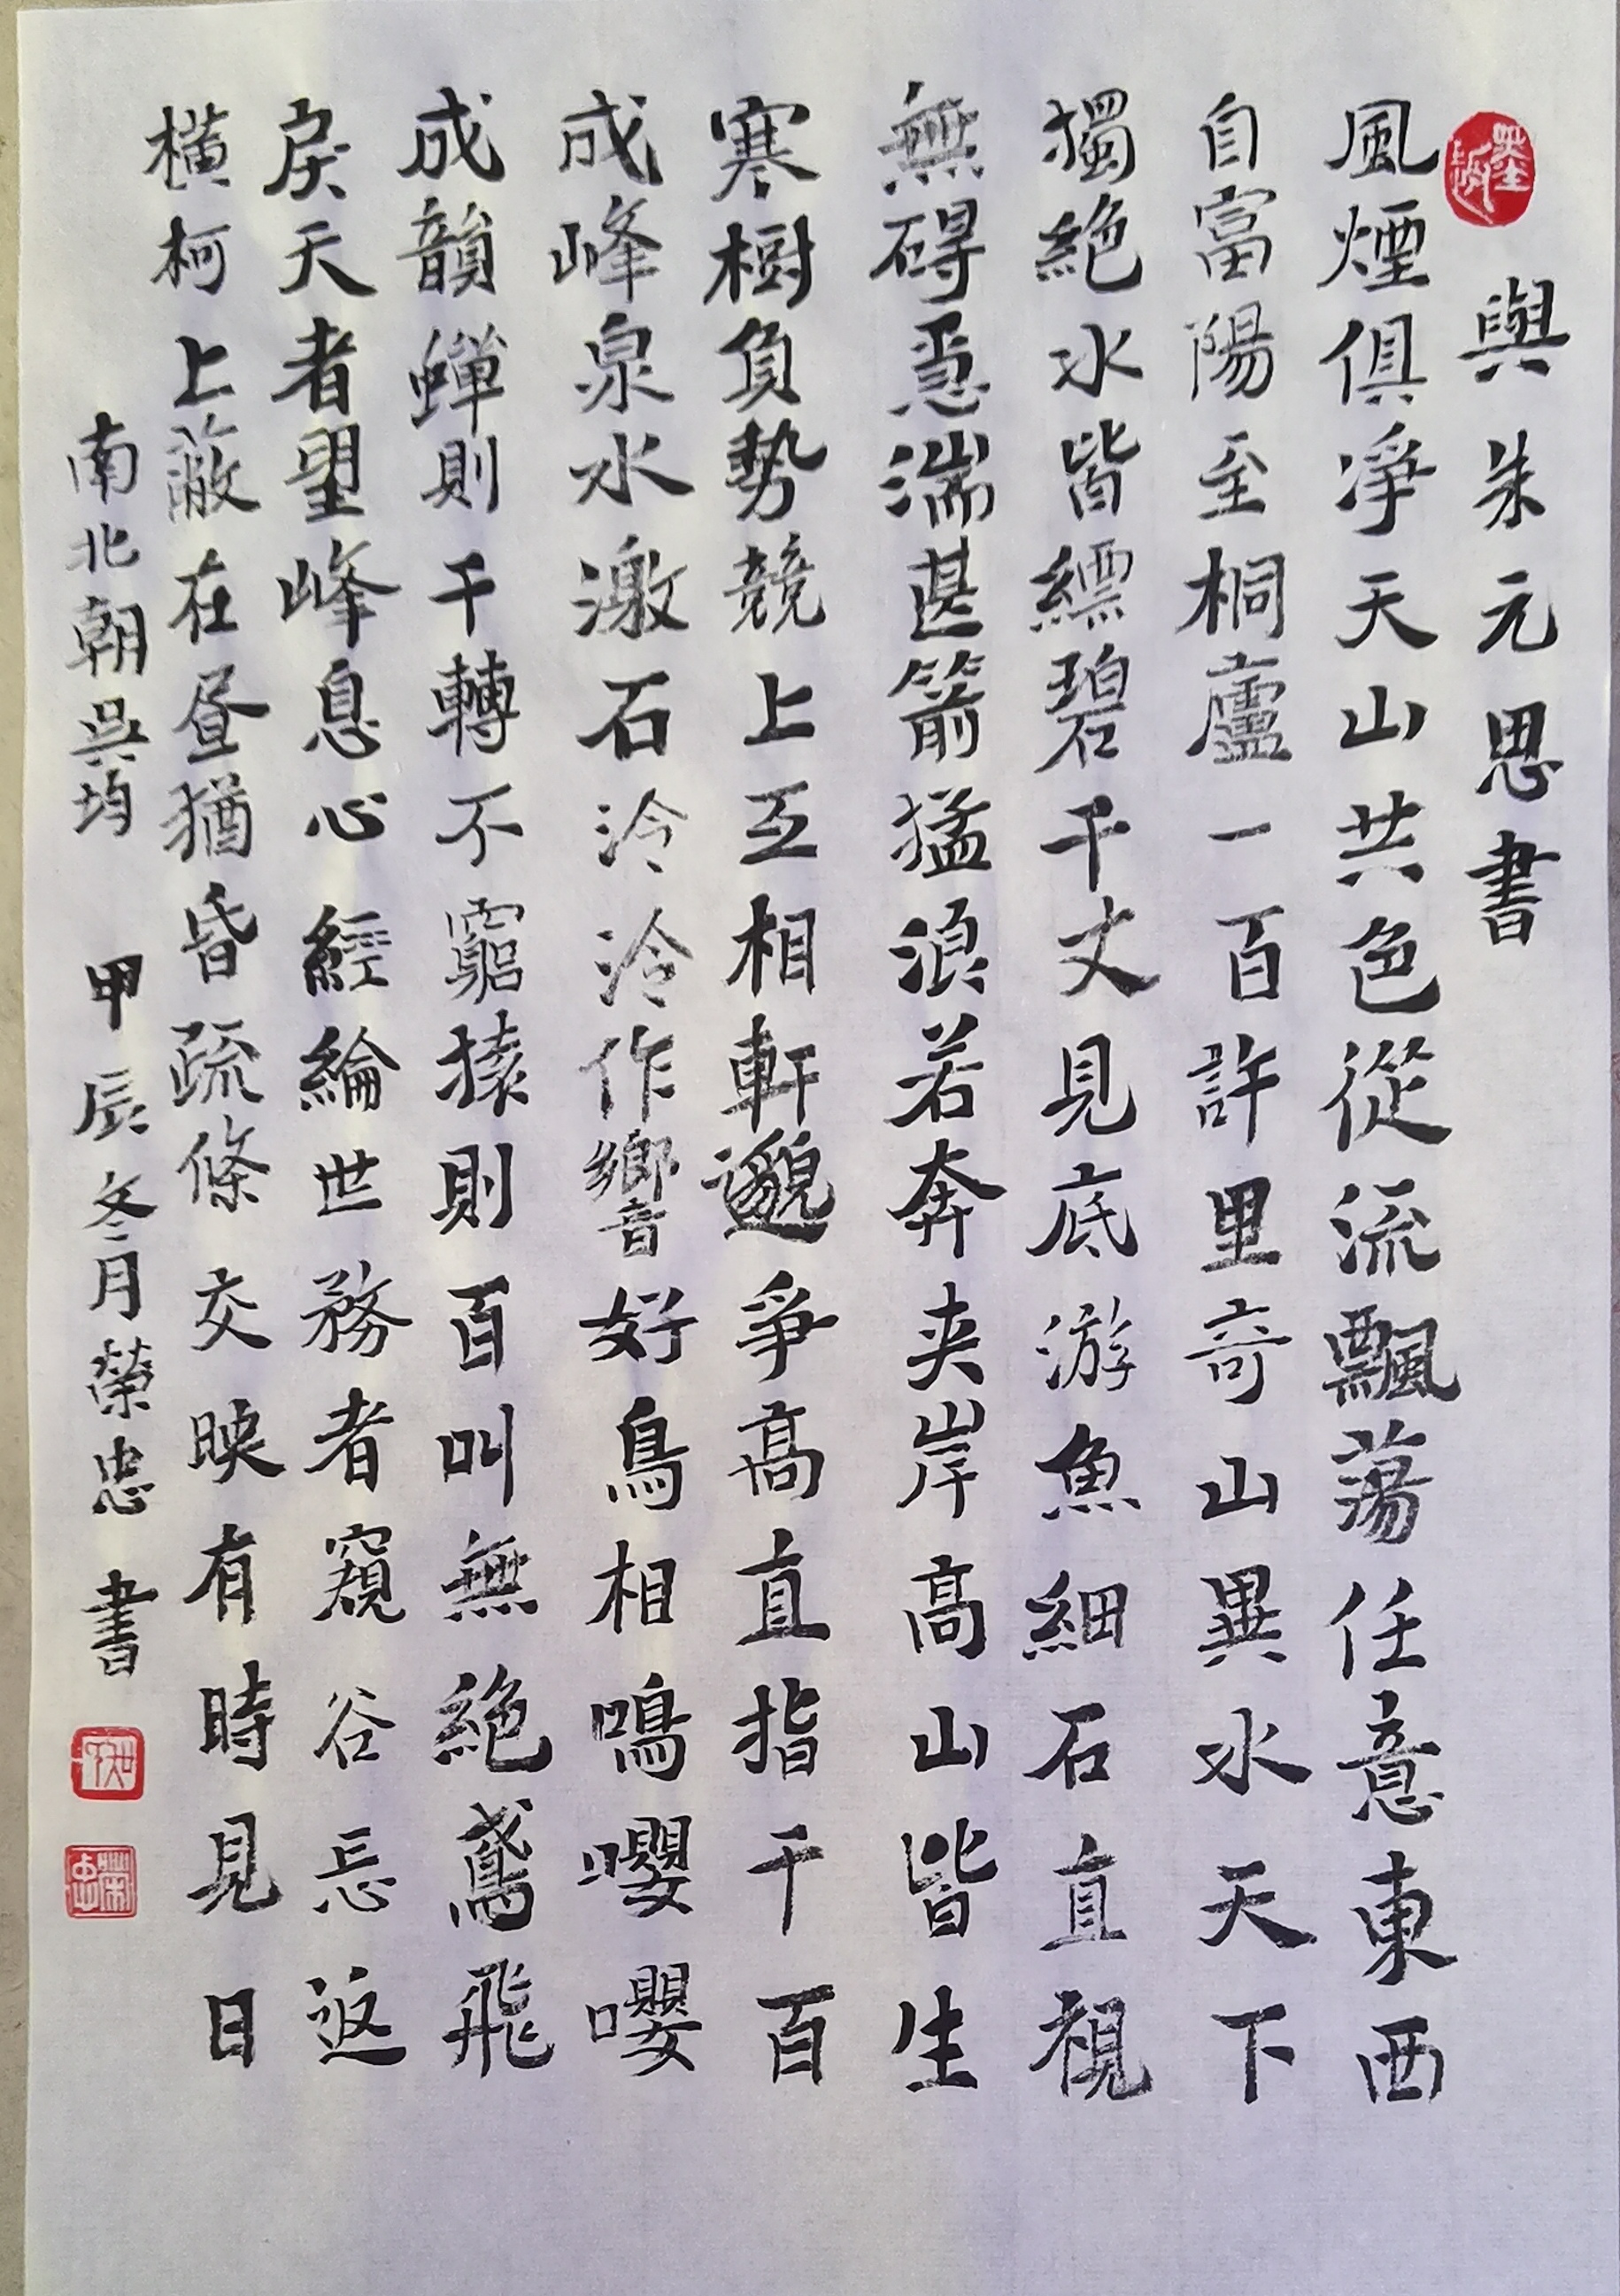 與朱元思書
風煙俱淨天山共色從流飄蕩任意東西
自富陽至桐廬一百許里奇山異水天下
獨絕水皆縹碧千丈見底游魚細石直視
無碍急湍甚箭猛浪若奔夾岸高山皆生
寒樹負勢競上互相軒邈爭高直指千百
成峰泉水激石泠泠作響好鳥相鳴嚶嚶
成韻蟬則千轉不窮猿則百叫無絕鳶飛
戾天者望峰息心經綸世務者窺谷忘返
橫柯上蔽在昼猶昏疏條交映有時見日
南北朝吳均 甲辰冬月榮忠書